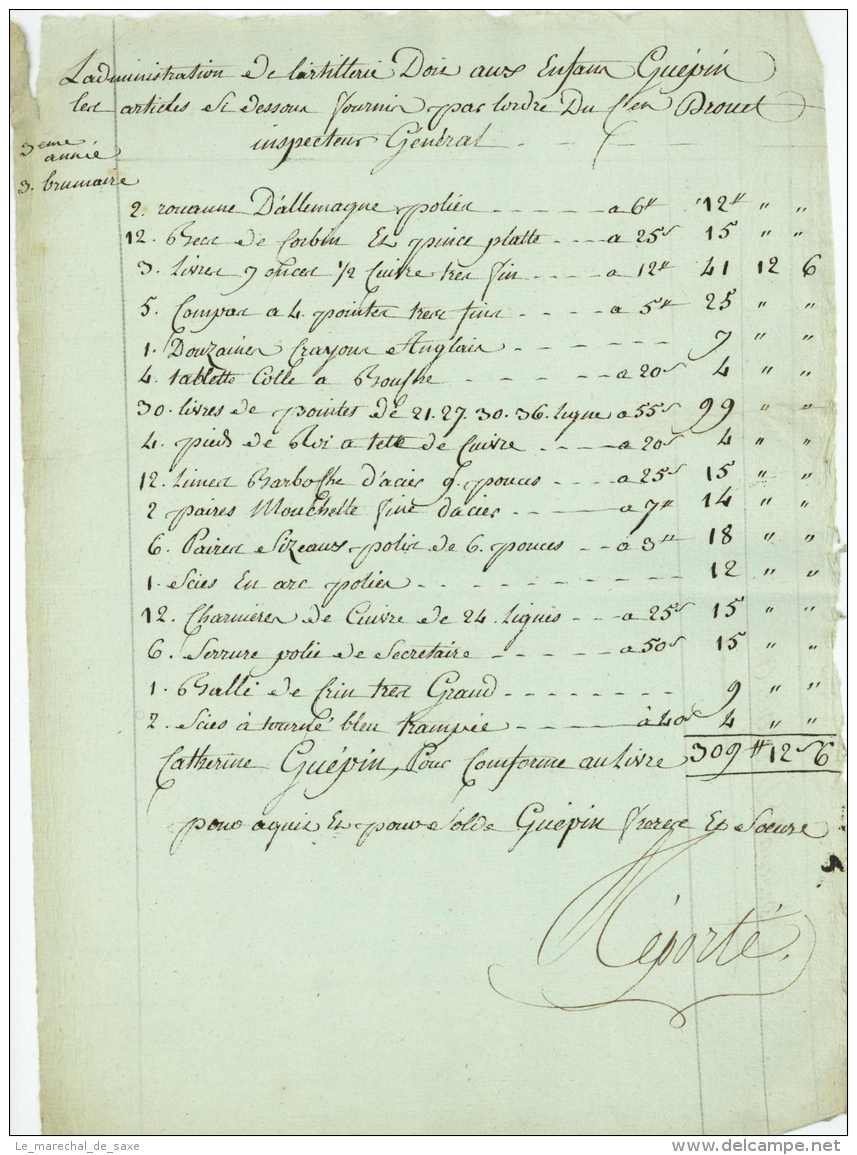 Ladministration de lartillerie Doit aux Enfans Guépin
les articles Si dessous fournis par lordre Du Cen Drouet
3eme
année
inspecteur Général
3. brumaire
2. rouanne D'allemagne polies a 6# 12# " "
12. Becs de Corbin Et pince platte a 25s 15 " "
3. Livres 7 onces 1/2 Cuivre tres fin a 12# 41 12 6
5. Compas a 4. pointes tres fins a 5# 25 " "
1. Douzaines Crayons Anglais 7 " "
4. tablette Colle a Bouche a 20s 4 " "
30. livres de pointes de 21. 27. 30. 36. ligne a 55s 99 " "
4. pieds de Roi a tette de Cuivre a 20s 4 " "
12. Limes Barboche d'acier 9. pouces a 25s 15 " "
2 paires Mouchette fine dacier a 7# 14 " "
6. Paires Sizeaux polis de 6. pouces a 3# 18 " "
1. Scies En arc polies 12 " "
12. Charnieres de Cuivre de 24. lignes a 25s 15 " "
6. Serrure polie de Secretaire a 50s 15 " "
1. Balle de Crin tres Grand 9 " "
2. Scies à tourné bleu trampée à 40s 4 " "
Catherine Guépin, Pour Comforme au Livre 309# 12s 6
pour aquit Et pour Solde Guépin frere Et Soeure
Réporté.
Le_marechal_de_saxe
delcampe.net